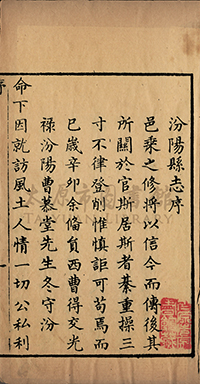 汾陽縣志序
邑乘之修將以信今而傳後其
所關於官斯居斯者綦重操三
寸不律登削惟慎詎可苟焉而
已歲辛卯余俻員西曹得交光
祿汾陽曹慕堂先生冬守汾
命下因就訪風土人情一切公私利